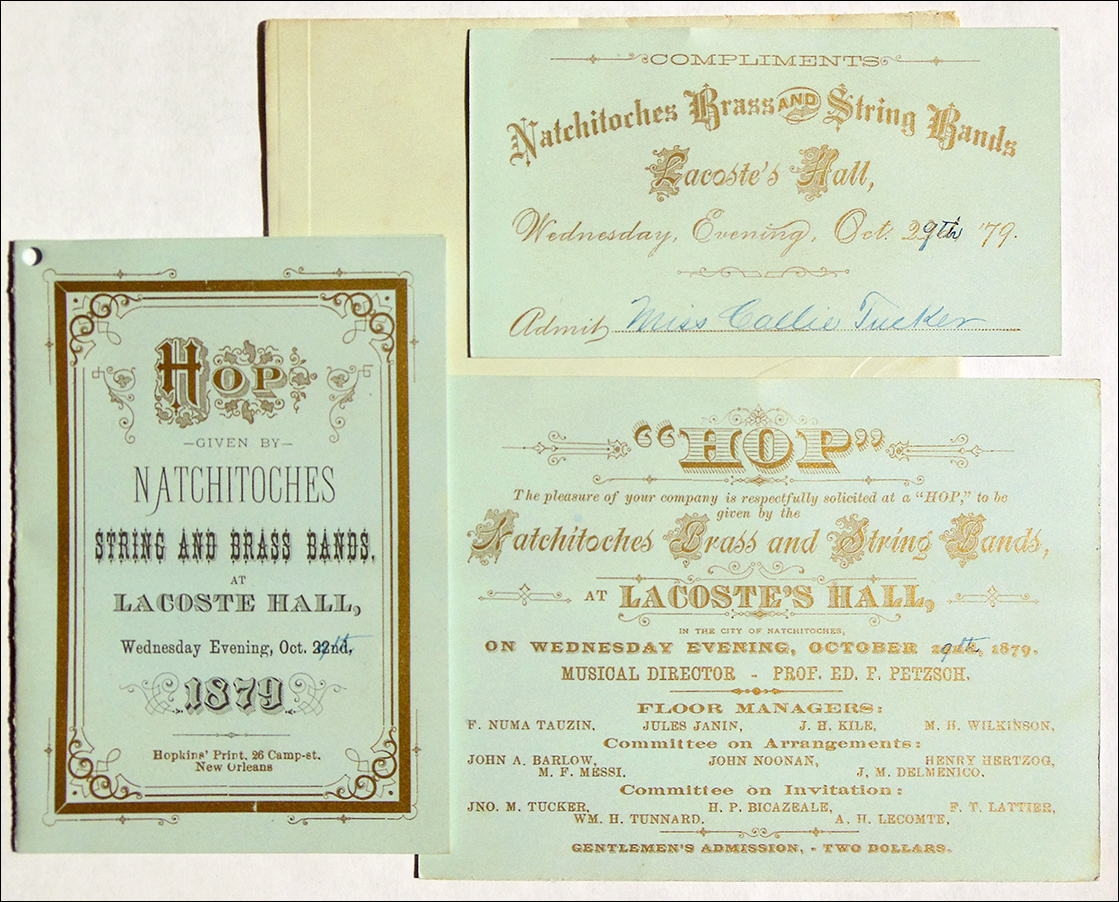 COMPLIMENTS
Natchitoches Brass AND String Bands
Lacoste's Hall,
Wednesday, Evening, Oct. 29th '79.
Admit Miss Callie Tucker
HOP
—GIVEN BY—
NATCHITOCHES
STRING AND BRASS BANDS.
AT
LACOSTE HALL,
Wednesday Evening, Oct. 22nd, 9th
1879
Hopkins' Print, 26 Camp-st.
New Orleans
"HOP"
The pleasure of your company is respectfully solicited at a "HOP," to be
given by the
Natchitoches Brass and String Bands,
AT LACOSTE'S HALL,
IN THE CITY OF NATCHITOCHES,
ON WEDNESDAY EVENING, OCTOBER 29th, 1879.
MUSICAL DIRECTOR - PROF. ED. F. PETZSCH.
FLOOR MANAGERS:
F. NUMA TAUZIN, JULES JANIN, J. H. KILE, M. H. WILKINSON,
Committee on Arrangements:
JOHN A. BARLOW, JOHN NOONAN, HENRY HERTZOG,
M. F. MESSI. J, M. DELMENICO.
Committee on Invitation:
JNO. M. TUCKER, H. P. BICAZEALE, F. T. LATTIER,
WM. H. TUNNARD. A. H. LECOMTE,
GENTLEMEN'S ADMISSION, - TWO DOLLARS.